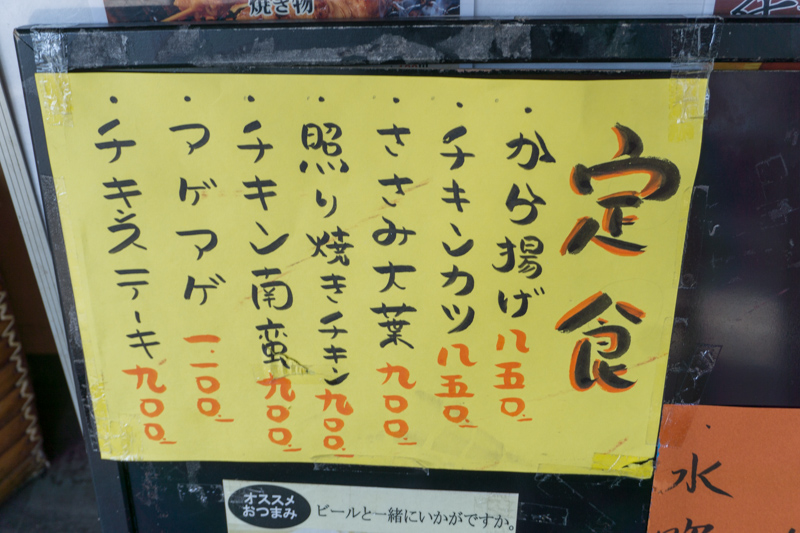 焼き物
定食
・から揚げ 八五〇.
・チキンカツ 八五〇.
・ささみ大葉 九〇〇.
・照り焼きチキン 九〇〇.
・チキン南蛮 九〇〇.
・マゲマゲ 一.一〇〇.
・チキンステーキ 九〇〇.
オススメ
おつまみ
ビールと一緒にいかがですか。
水